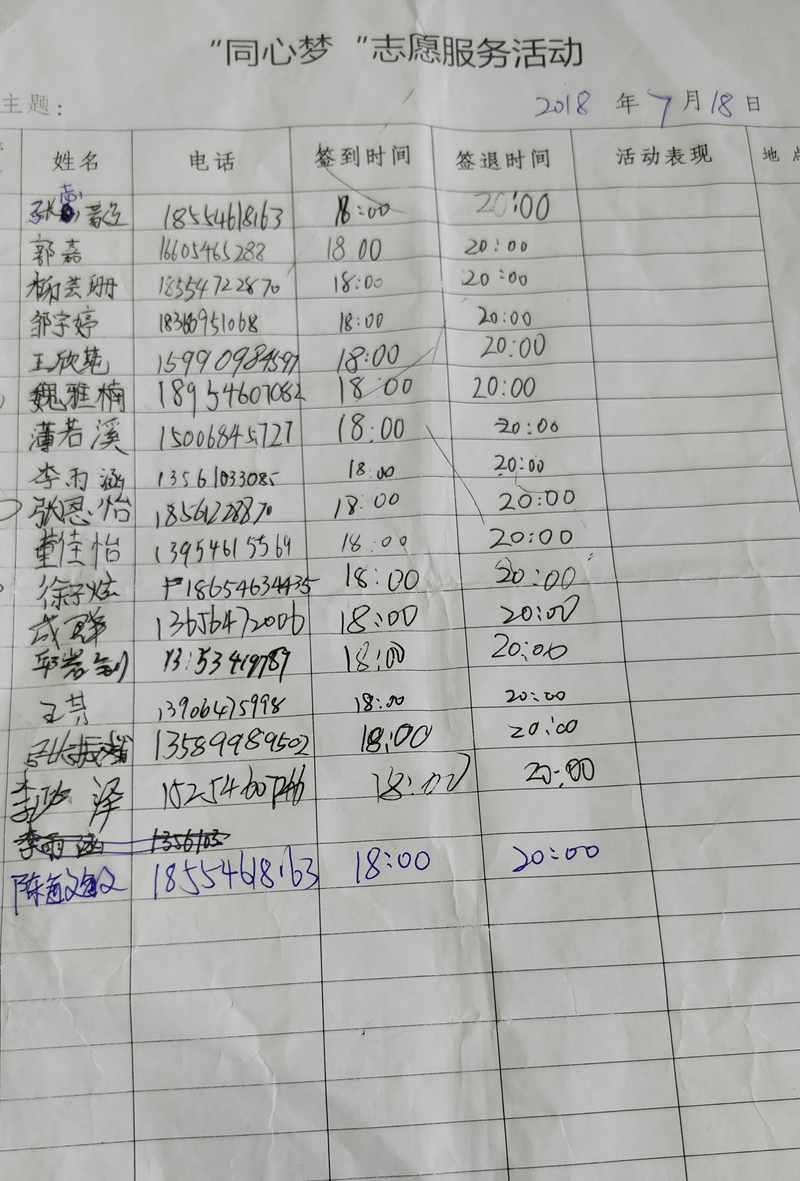 “同心梦 “志愿服务活动
主题： 2018 年 7 月 18 日
姓名 电话 签到时间 签退时间 活动表现 地点
18554618163 18:00 20:00
郭嘉 16605465288 18 00 20:00
杨芸珊 18554722870 18:00 20:00
邹宇婷 18366951068 18:00 20:00
王欣苑 15990984597 18:00 20:00
魏雅楠 18954607082 18:00 20:00
薄若溪 15006845727 18:00 20:00
李雨涵 13561033085 18:00 20:00
张恩怡 1856228870 18:00 20:00
董佳怡 13954615569 18:00 20:00
徐子炫 18654634435 18:00 20:00
13656472006 18:00 20:00
邱岩钊 18:00 20:00
王芳 13906475998 18:00 20:00
13589989502 18:00 20:00
泽 18:00 20:00
李雨涵 1356103
陈敏敏 18554618163 18:00 20:00